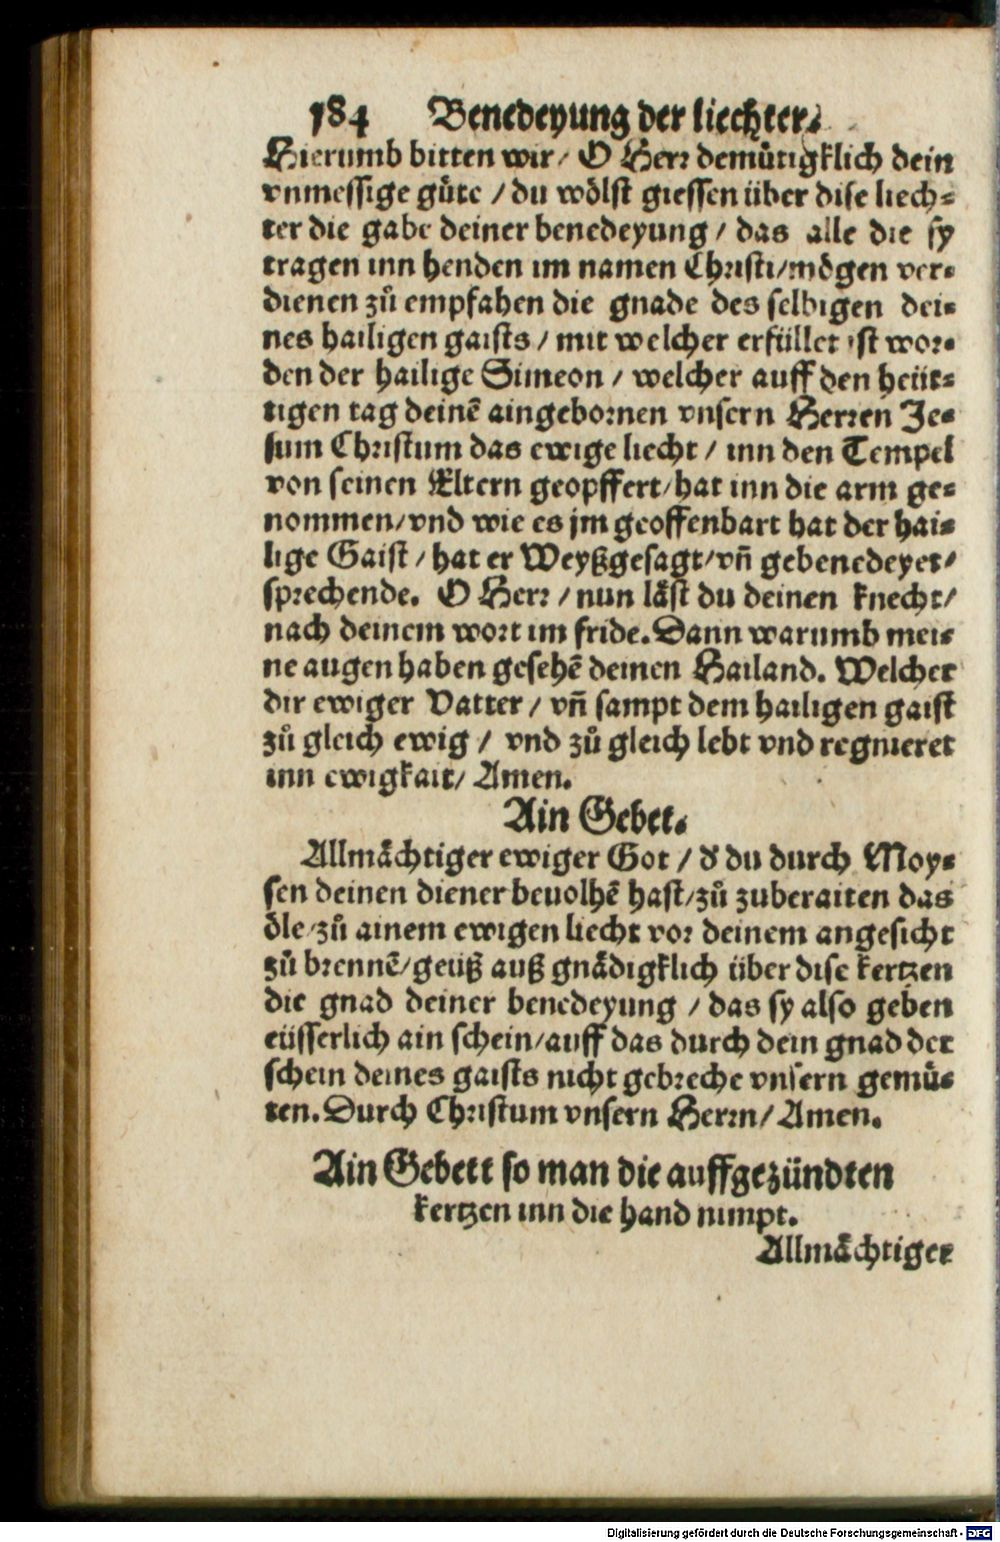 184 Benedeyung der liechter.
Hierumb bitten wir / O Herr demuͤtigklich dein
vnmessige guͤte / du woͤlst giessen über dise liech⸗
ter die gabe deiner benedeyung / das alle die sy
tragen inn henden im namen Christi/moͤgen ver⸗
dienen zuͦ empfahen die gnade des selbigen dei⸗
nes hailigen gaists / mit welcher erfüllet ist wor⸗
den der hailige Simeon / welcher auff den heüt⸗
tigen tag deinē aingebornen vnsern Herren Je⸗
sum Christum das ewige liecht / inn den Tempel
von seinen Eltern geopffert/hat inn die arm ge⸗
nommen/vnd wie es jm geoffenbart hat der hai⸗
lige Gaist / hat er Weyßgesagt/vn̄ gebenedeyet/
sprechende. O Herr / nun laͤst du deinen knecht/
nach deinem wort im fride. Dann warumb mei⸗
ne augen haben gesehē deinen Hailand. Welcher
dir ewiger Vatter / vn̄ sampt dem hailigen gaist
zuͦ gleich ewig / vnd zuͦ gleich lebt vnd regnieret
inn ewigkait/ Amen.
Ain Gebet.
Allmaͤchtiger ewiger Got / d̓ du durch Moy⸗
sen deinen diener beuolhē hast/zuͦ zuberaiten das
oͤle/zuͦ ainem ewigen liecht vor deinem angesicht
zuͦ brennē/geüß auß gnaͤdigklich über dise kertzen
die gnad deiner benedeyung / das sy also geben
eüsserlich ain schein/auff das durch dein gnad der
schein deines gaists nicht gebreche vnsern gemuͤ⸗
ten. Durch Christum vnsern Herrn/ Amen.
Ain Gebett so man die auffgezündten
kertzen inn die hand nimpt.
Allmaͤchtiger
Digitalisierung gefördert durch die Deutsche Forschungsgemeinschaft - DFG